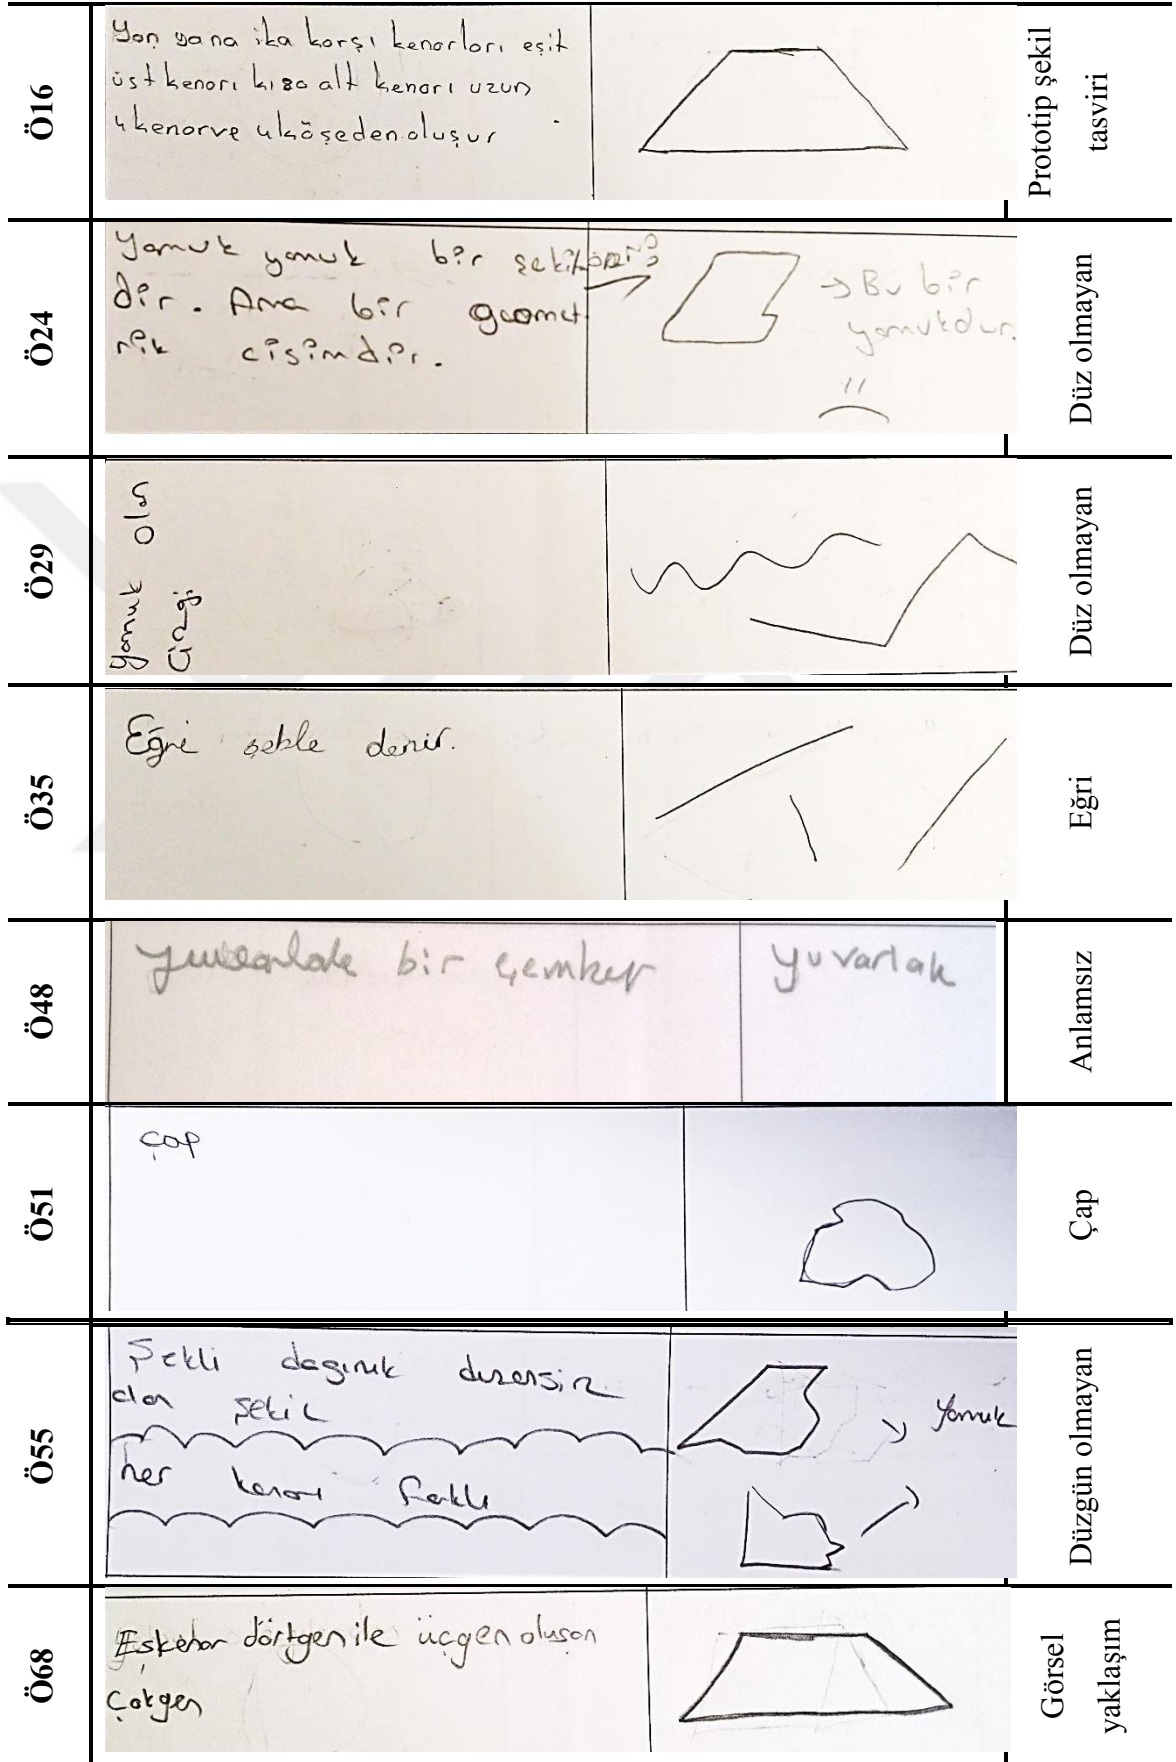 Ö16
Yan yana ika karşı kenarları eşit
üst kenarı kısa alt kenarı uzun
4 kenar ve 4 köşeden oluşur
Prototip şekil
tasviri
Ö24
Yamuk yamuk bir şekil
dir. Ama bir geomet
rik cisimdir.
→ Bu bir
yamukdur.
Düz olmayan
Ö29
Yamuk olan
çizgi
Düz olmayan
Ö35
Eğri şekle denir.
Eğri
Ö48
yuvarlak bir çember
yuvarlak
Anlamsız
Ö51
çap
Çap
Ö55
Şekli dağınık düzensiz
olan şekil
her kenarı farklı
Yamuk
Düzgün olmayan
Ö68
Eşkenar dörtgen ile üçgen oluşan
Çokgen
Görsel
yaklaşım